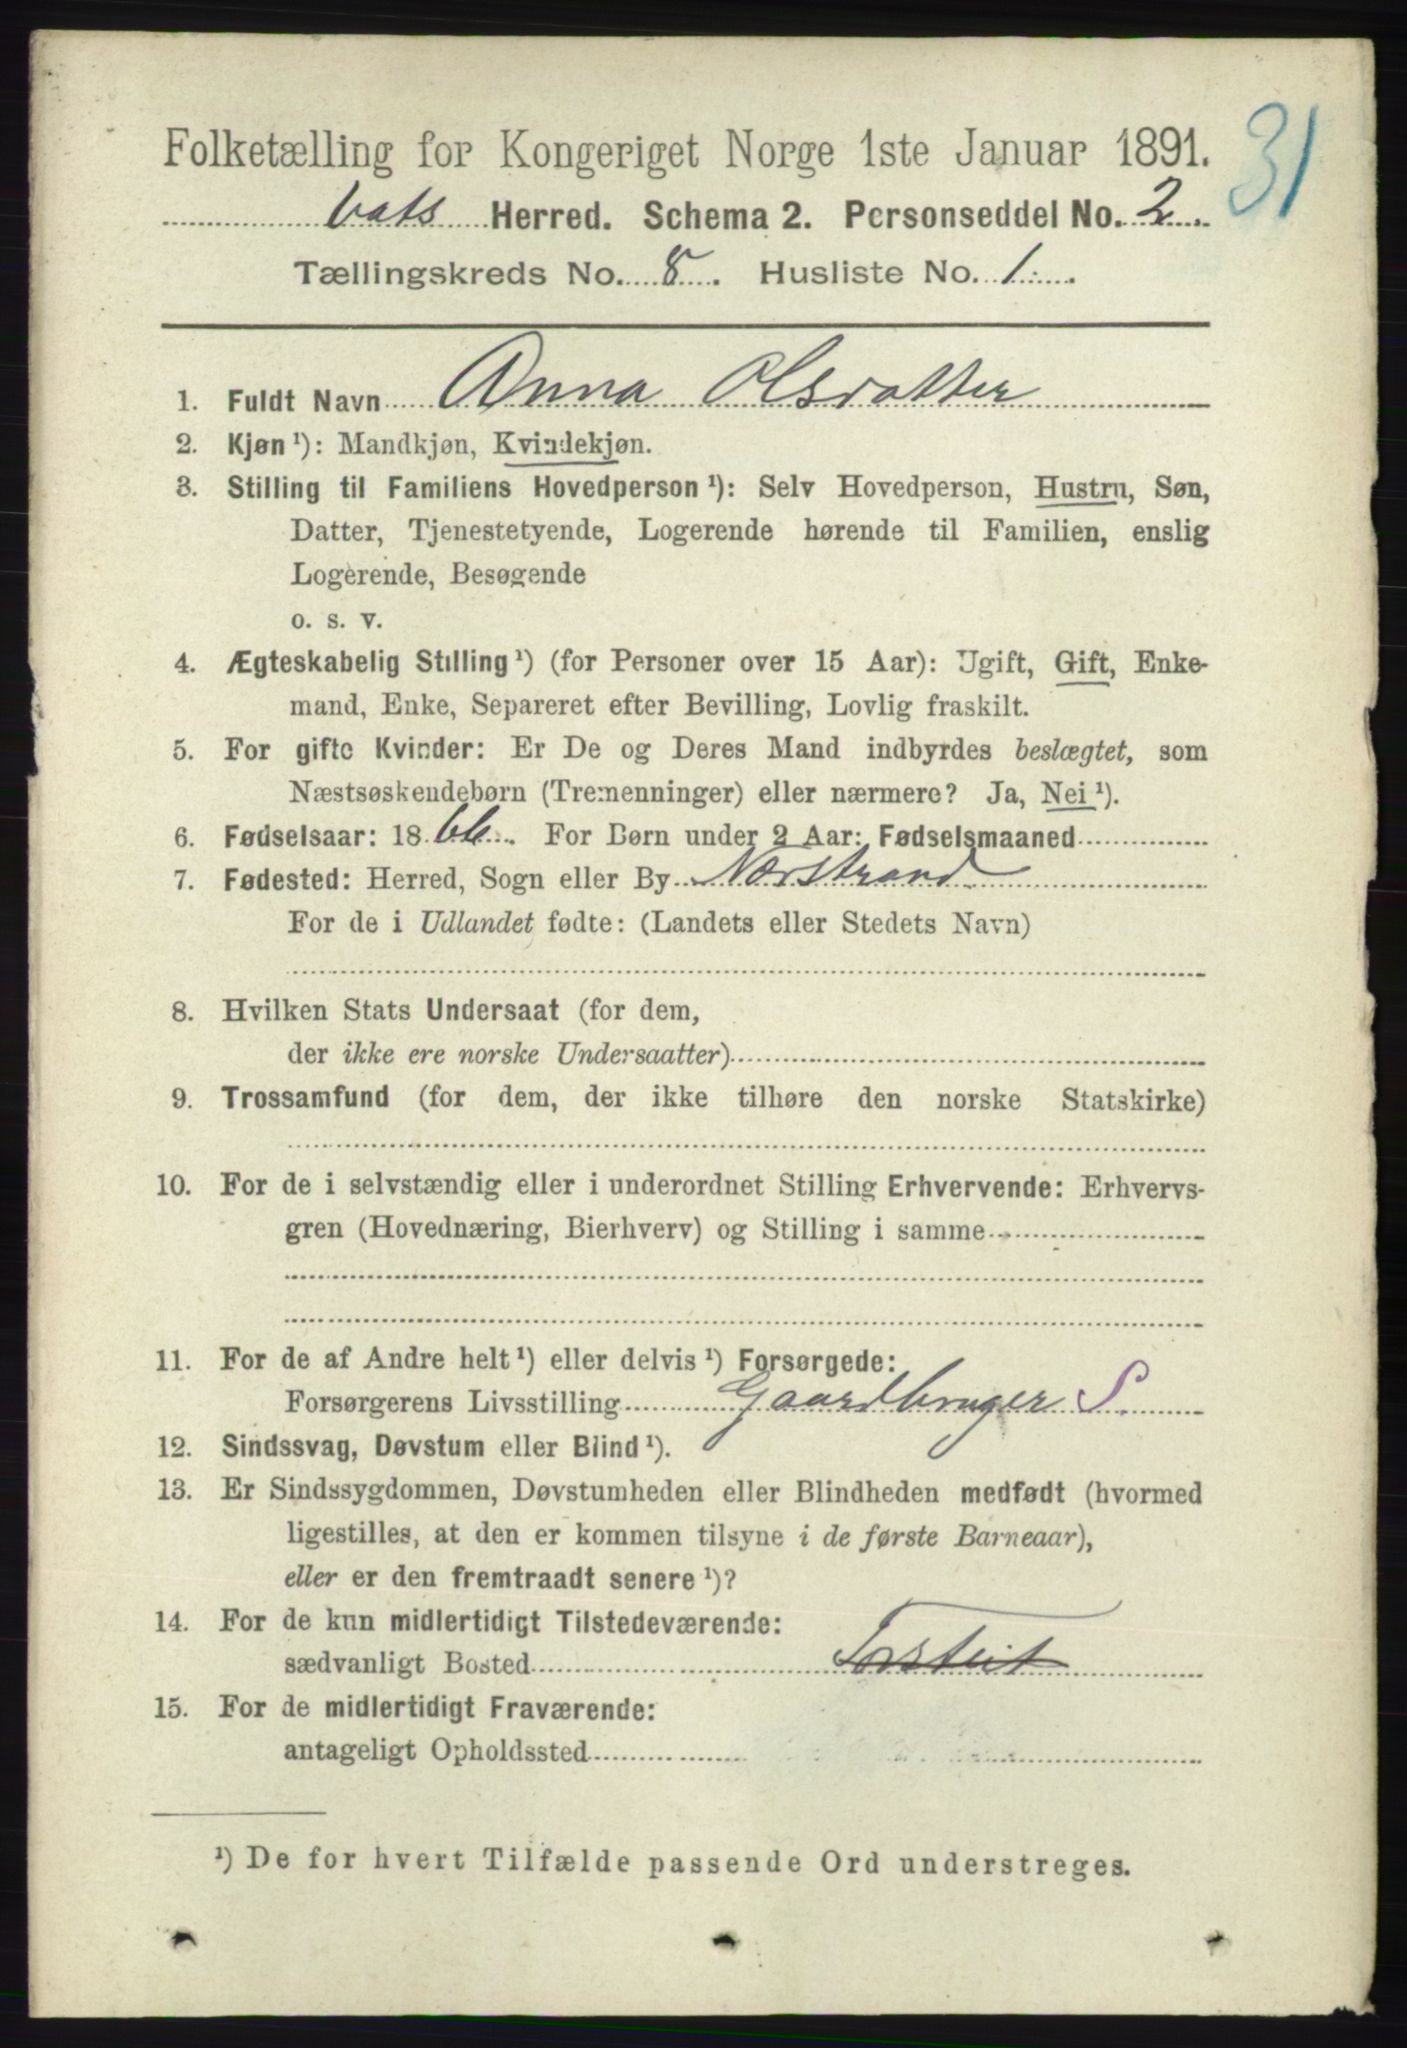 31
Folketælling for Kongeriget Norge 1ste Januar 1891.
Vats Herred. Schema 2. Personseddel No. 2.
Tællingskreds No. 8. Husliste No. 1.
1. Fuldt Navn Anna Olsdatter
2. Kjøn ¹): Mandkjøn, Kvindekjøn.
3. Stilling til Familiens Hovedperson ¹): Selv Hovedperson, Hustru, Søn,
Datter, Tjenestetyende, Logerende hørende til Familien, enslig
Logerende, Besøgende
o. s. v.
4. Ægteskabelig Stilling ¹) (for Personer over 15 Aar): Ugift, Gift, Enke-
mand, Enke, Separeret efter Bevilling, Lovlig fraskilt.
5. For gifte Kvinder: Er De og Deres Mand indbyrdes beslægtet, som
Næstsøskendebørn (Tremenninger) eller nærmere? Ja, Nei ¹).
6. Fødselsaar: 1866. For Børn under 2 Aar: Fødselsmaaned
7. Fødested: Herred, Sogn eller By Nærstrand
For de i Udlandet fødte: (Landets eller Stedets Navn)
8. Hvilken Stats Undersaat (for dem,
der ikke ere norske Undersaatter)
9. Trossamfund (for dem, der ikke tilhøre den norske Statskirke)
10. For de i selvstændig eller i underordnet Stilling Erhvervende: Erhvervs-
gren (Hovednæring, Bierhverv) og Stilling i samme
11. For de af Andre helt ¹) eller delvis ¹) Forsørgede:
Forsørgerens Livsstilling Gaardbruger S.
12. Sindssvag, Døvstum eller Blind ¹).
13. Er Sindssygdommen, Døvstumheden eller Blindheden medfødt (hvormed
ligestilles, at den er kommen tilsyne i de første Barneaar),
eller er den fremtraadt senere ¹)?
14. For de kun midlertidigt Tilstedeværende:
sædvanligt Bosted Torsteit
15. For de midlertidigt Fraværende:
antageligt Opholdssted
¹) De for hvert Tilfælde passende Ord understreges.